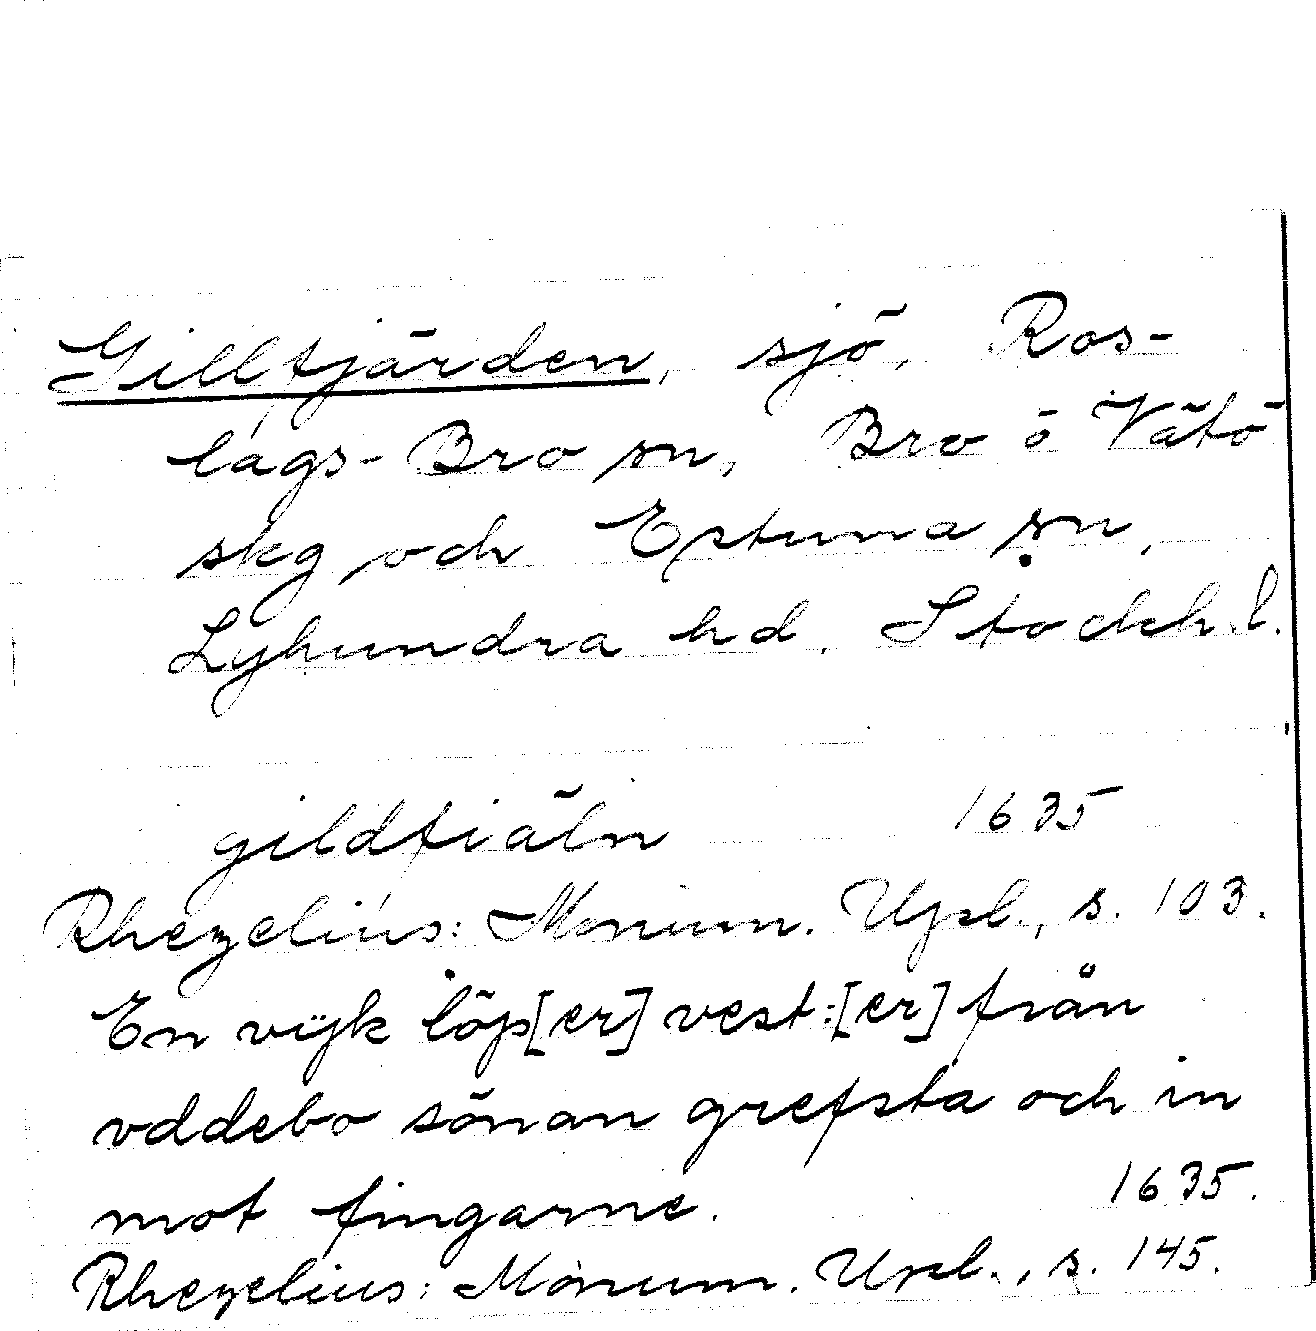 Gillfjärden, sjö, Ros-
lags-Bro sn, Bro o Vätö
skg och Estuna sn,
Lyhundra hd. Stockh. l.
gildfiäln 1635
Rhezelius: Monum. Upl., s. 103.
En vijk löp[er] vest:[er] från
vddebo sönan grefsta och in
mot fingarne. 1635.
Rhezelius: Monum. Upl., s. 145.